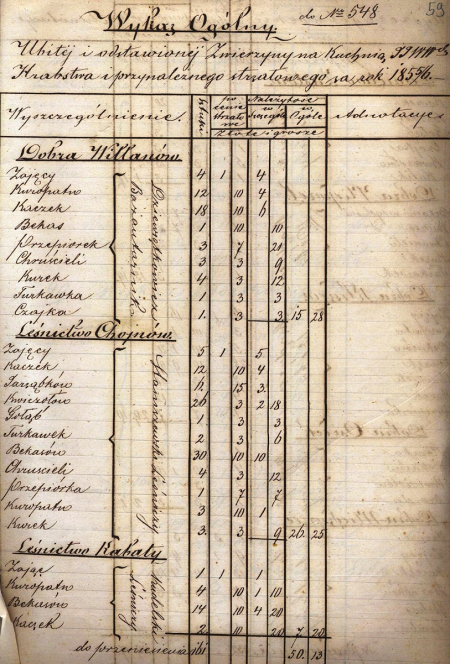 do Nro 548
59
Wykaz Ogólny
Ubitej i odstawionej Zwierzyny na Kuchnią JJWW
Hrabstwa i przynależnego strzałowego, za rok 1855/6.
Wyszczególnienie. Sztuki po cenie strzałowe Należytość w Szczególe w Ogóle Adnotacye
Złote i grosze
Dobra Willanów.
Zający 4 1 4
Kuropatw 12 10 4
Kaczek 18 10 6
Bekas 1 10 10
Przepiórek 3 7 21
Chruścieli 3 3 9
Kurek 4 3 12
Turkawka 1 3 3
Czajka 1. 3 3 15 28
Bażantarnik
Leśnictwo Chojnów.
Zający 5 1 5.
Kaczek 12 10 4
Jarząbków 15 3.
Kwiczołów 26 3 2 18
Gołąb 1 3 3
Turkawek 2 3 6
Bekasów 30 10 10
Chruścieli 4 3 12
Przepiórka 1 7 7
Kuropatw 3 10 1
Kurek 3. 3 9 26. 25
Leśniczy
Leśnictwo Kabaty
Zając 1 1 1
Kuropatw 4 10 1 10
Bekasów 14 10 4 20
Kaczek 2. 10 20 7 20
Leśniczy
do przeniesienia 161 50. 13